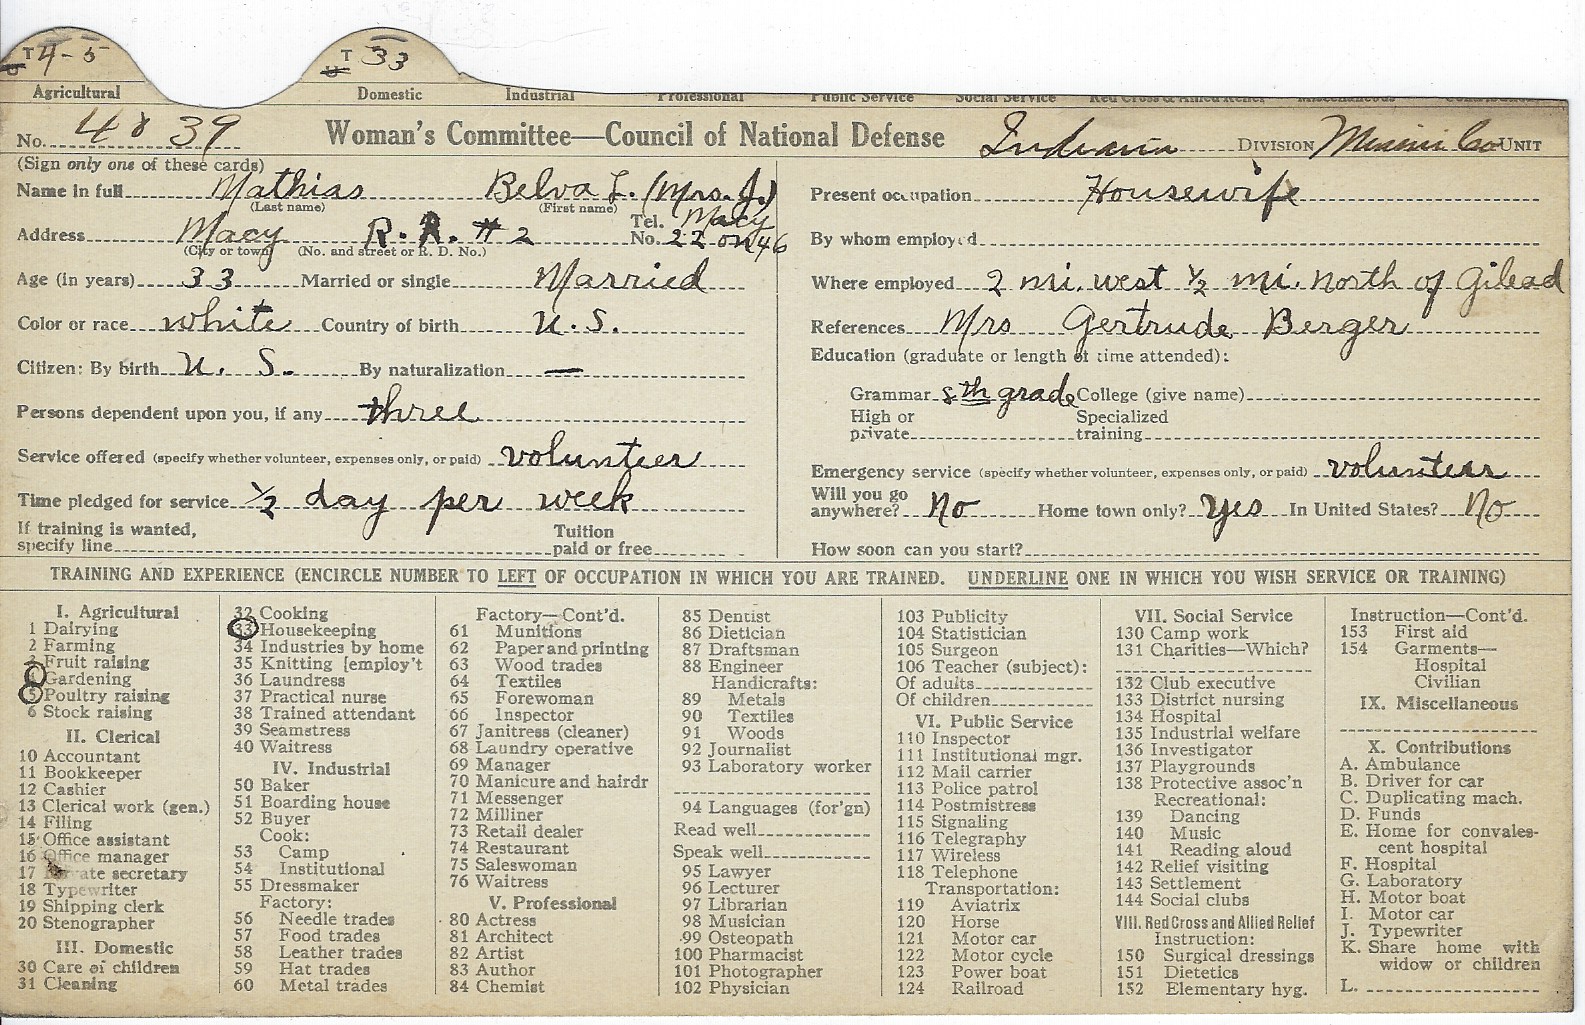 T 4-5 T 33
Agricultural Domestic Industrial Professional Public Service Social Service Red Cross & Allied Relief Miscellaneous
No. 4839 Woman's Committee—Council of National Defense Indiana DIVISION Miami Co UNIT
(Sign only one of these cards)
Name in full Mathias Belva L. (Mrs. J.)
(Last name) (First name)
Address Macy R. R. # 2 Tel. No. Macy 22 on 46
(City or town) (No. and street or R. D. No.)
Age (in years) 33 Married or single Married
Color or race white Country of birth U. S.
Citizen: By birth U. S. By naturalization —
Persons dependent upon you, if any three
Service offered (specify whether volunteer, expenses only, or paid) volunteer
Time pledged for service ½ day per week
If training is wanted, specify line Tuition paid or free
Present occupation Housewife
By whom employed
Where employed 2 mi. west ½ mi. north of Gilead
References Mrs Gertrude Berger
Education (graduate or length of time attended):
Grammar 8th grade College (give name)
High or private Specialized training
Emergency service (specify whether volunteer, expenses only, or paid) volunteer
Will you go anywhere? No Home town only? Yes In United States? No
How soon can you start?
TRAINING AND EXPERIENCE (ENCIRCLE NUMBER TO LEFT OF OCCUPATION IN WHICH YOU ARE TRAINED. UNDERLINE ONE IN WHICH YOU WISH SERVICE OR TRAINING)
I. Agricultural
1 Dairying
2 Farming
3 Fruit raising
4 Gardening
5 Poultry raising
6 Stock raising
II. Clerical
10 Accountant
11 Bookkeeper
12 Cashier
13 Clerical work (gen.)
14 Filing
15 Office assistant
16 Office manager
17 Private secretary
18 Typewriter
19 Shipping clerk
20 Stenographer
III. Domestic
30 Care of children
31 Cleaning
32 Cooking
33 Housekeeping
34 Industries by home
35 Knitting [employ't
36 Laundress
37 Practical nurse
38 Trained attendant
39 Seamstress
40 Waitress
IV. Industrial
50 Baker
51 Boarding house
52 Buyer
Cook:
53 Camp
54 Institutional
55 Dressmaker
Factory:
56 Needle trades
57 Food trades
58 Leather trades
59 Hat trades
60 Metal trades
Factory—Cont'd.
61 Munitions
62 Paper and printing
63 Wood trades
64 Textiles
65 Forewoman
66 Inspector
67 Janitress (cleaner)
68 Laundry operative
69 Manager
70 Manicure and hairdr
71 Messenger
72 Milliner
73 Retail dealer
74 Restaurant
75 Saleswoman
76 Waitress
V. Professional
80 Actress
81 Architect
82 Artist
83 Author
84 Chemist
85 Dentist
86 Dietician
87 Draftsman
88 Engineer
Handicrafts:
89 Metals
90 Textiles
91 Woods
92 Journalist
93 Laboratory worker
94 Languages (for'gn)
Read well
Speak well
95 Lawyer
96 Lecturer
97 Librarian
98 Musician
99 Osteopath
100 Pharmacist
101 Photographer
102 Physician
103 Publicity
104 Statistician
105 Surgeon
106 Teacher (subject):
Of adults
Of children
VI. Public Service
110 Inspector
111 Institutional mgr.
112 Mail carrier
113 Police patrol
114 Postmistress
115 Signaling
116 Telegraphy
117 Wireless
118 Telephone
Transportation:
119 Aviatrix
120 Horse
121 Motor car
122 Motor cycle
123 Power boat
124 Railroad
VII. Social Service
130 Camp work
131 Charities—Which?
132 Club executive
133 District nursing
134 Hospital
135 Industrial welfare
136 Investigator
137 Playgrounds
138 Protective assoc'n
Recreational:
139 Dancing
140 Music
141 Reading aloud
142 Relief visiting
143 Settlement
144 Social clubs
VIII. Red Cross and Allied Relief
Instruction:
150 Surgical dressings
151 Dietetics
152 Elementary hyg.
Instruction—Cont'd.
153 First aid
154 Garments—
Hospital
Civilian
IX. Miscellaneous
X. Contributions
A. Ambulance
B. Driver for car
C. Duplicating mach.
D. Funds
E. Home for convales-
cent hospital
F. Hospital
G. Laboratory
H. Motor boat
I. Motor car
J. Typewriter
K. Share home with
widow or children
L.